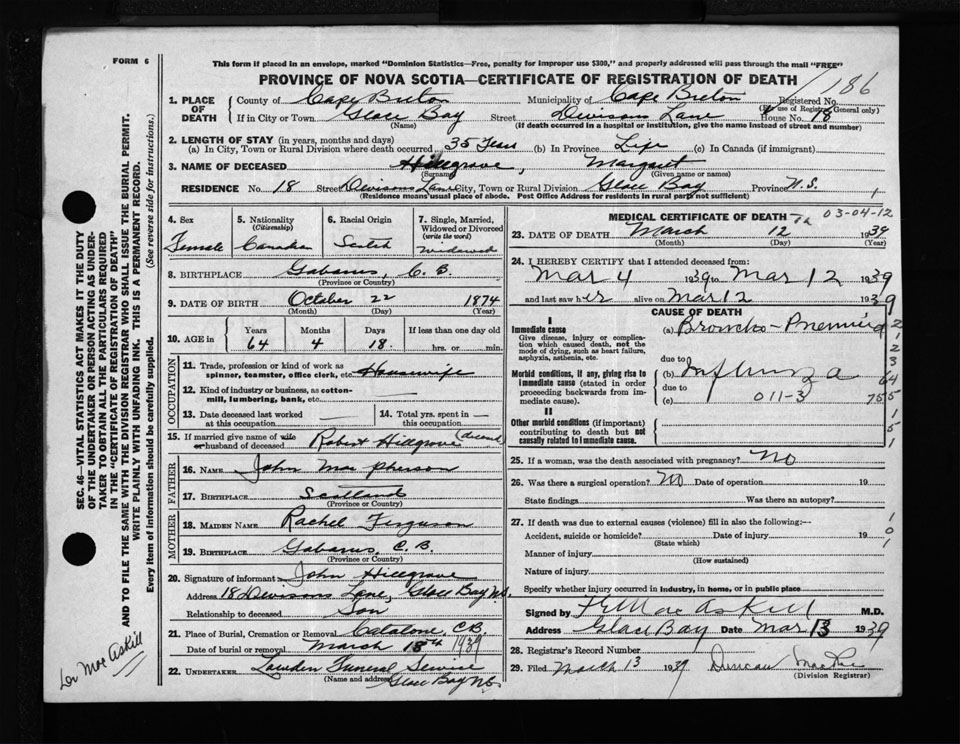 FORM 6
This form if placed in an envelope, marked "Dominion Statistics—Free, penalty for improper use $300," and properly addressed will pass through the mail "FREE"
PROVINCE OF NOVA SCOTIA—CERTIFICATE OF REGISTRATION OF DEATH
186
1. PLACE OF DEATH County of Cape Breton Municipality of Cape Breton Registered No.
(For use of Registrar General only)
If in City or Town Glace Bay Street Devisons Lane House No. 18
(Name) (If death occurred in a hospital or institution, give the name instead of street and number)
2. LENGTH OF STAY (in years, months and days)
(a) In City, Town or Rural Division where death occurred 35 Years (b) In Province Life (c) In Canada (if immigrant)
3. NAME OF DECEASED Hillgrove, Margaret
(Surname) (Given name or names)
RESIDENCE No. 18 Street Devisons Lane City, Town or Rural Division Glace Bay Province N.S.
(Residence means usual place of abode. Post Office Address for residents in rural parts not sufficient)
4. Sex Female
5. Nationality (Citizenship) Canadian
6. Racial Origin Scotch
7. Single, Married, Widowed or Divorced (write the word) widowed
8. BIRTHPLACE Gabarus, C.B.
(Province or Country)
9. DATE OF BIRTH October 22 1874
(Month) (Day) (Year)
10. AGE in Years Months Days If less than one day old
64 4 18 hrs. or min.
OCCUPATION
11. Trade, profession or kind of work as spinner, teamster, office clerk, etc. Housewife
12. Kind of industry or business, as cotton-mill, lumbering, bank, etc.
13. Date deceased last worked at this occupation
14. Total yrs. spent in this occupation
15. If married give name of wife or husband of deceased Robert Hillgrove
FATHER
16. NAME John MacPherson
17. BIRTHPLACE Scotland
(Province or Country)
MOTHER
18. MAIDEN NAME Rachel Ferguson
19. BIRTHPLACE Gabarus, C.B.
(Province or Country)
20. Signature of informant John Hillgrove
Address 18 Devisons Lane, Glace Bay N.S.
Relationship to deceased Son
21. Place of Burial, Cremation or Removal C.B.
Date of burial or removal March 1939
22. UNDERTAKER Lowden Funeral Service
(Name and address) Glace Bay N.S.
MEDICAL CERTIFICATE OF DEATH
03-04-12
23. DATE OF DEATH March 12 1939
(Month) (Day) (Year)
24. I HEREBY CERTIFY that I attended deceased from:
Mar 4 1939 to Mar 12 1939
and last saw her alive on Mar 12 1939
CAUSE OF DEATH
I
Immediate cause (a) Broncho-Pneumonia
Give disease, injury or complication which caused death, not the mode of dying, such as heart failure, asphyxia, asthenia, etc.
due to
Morbid conditions, if any, giving rise to immediate cause (stated in order proceeding backwards from immediate cause).
(b) Influenza
due to
(c) 011-3
II
Other morbid conditions (if important) contributing to death but not causally related to immediate cause.
25. If a woman, was the death associated with pregnancy? No
26. Was there a surgical operation? No Date of operation 19
State findings Was there an autopsy?
27. If death was due to external causes (violence) fill in also the following:—
Accident, suicide or homicide? Date of injury 19
(State which)
Manner of injury
(How sustained)
Nature of injury
Specify whether injury occurred in industry, in home, or in public place
Signed by MacAskill M.D.
Address Glace Bay Date Mar 13 1939
28. Registrar's Record Number
29. Filed March 13 1939 Duncan
(Division Registrar)
SEC. 46—VITAL STATISTICS ACT MAKES IT THE DUTY
OF THE UNDERTAKER OR PERSON ACTING AS UNDER-
TAKER TO OBTAIN ALL THE PARTICULARS REQUIRED
IN THE "CERTIFICATE OF REGISTRATION OF DEATH"
AND TO FILE THE SAME WITH THE DIVISION REGISTRAR WHO SHALL ISSUE THE BURIAL PERMIT.
WRITE PLAINLY WITH UNFADING INK. THIS IS A PERMANENT RECORD.
Every item of information should be carefully supplied. (See reverse side for instructions.)
Dr MacAskill